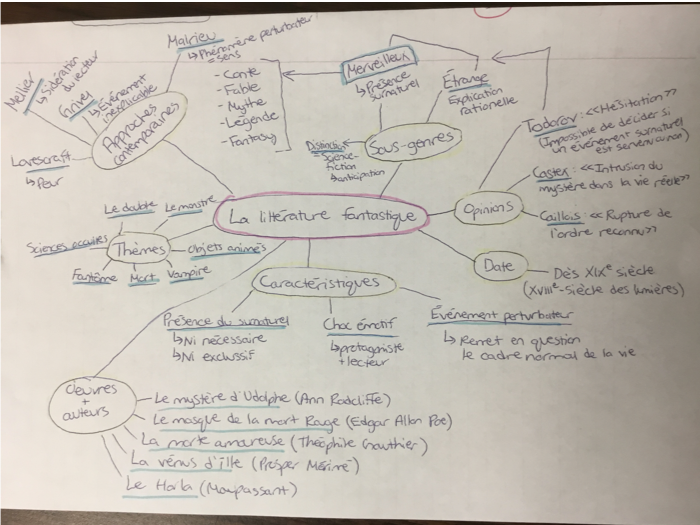 Malrieu
↳ Phénomène perturbateur
= sens
- Conte
- Fable
- Mythe
- Légende
- Fantasy
Mellier
↳ Sidération
du lecteur
Grivel
↳ Événement
inexplicable
Lovecraft
↳ Peur
Approches
contemporaines
Merveilleux
↳ Présence
surnaturel
Étrange
Explication
rationelle
Sous-genres
Distinction
= Science-
fiction
↳ anticipation
Todorov : <<Hésitation>>
(Impossible de décider si
un événement surnaturel
est servenu ou non)
Castex : <<Intrusion du
mystère dans la vie réelle>>
Caillois : <<Rupture de
l'ordre reconnu>>
Opinions
La littérature fantastique
Le double
Le monstre
Sciences occultes
Thèmes
Objets animés
Fantôme
Mort
Vampire
Date
- Dès XIXe siècle
(XVIIIe - Siècle des lumières)
Caractéristiques
Présence du surnaturel
↳ Ni nécessaire
↳ Ni exclussif
Choc émotif
↳ protagoniste
+ lecteur
Événement perturbateur
↳ Remet en question
le cadre normal de la vie
Oeuvres
+
auteurs
Le mystère d'Udolphe (Ann Radcliffe)
Le masque de la mort Rouge (Edgar Allan Poe)
La morte amoureuse (Théophile Gauthier)
La vénus d'ille (Prosper Mérimé)
Le Horla (Maupassant)